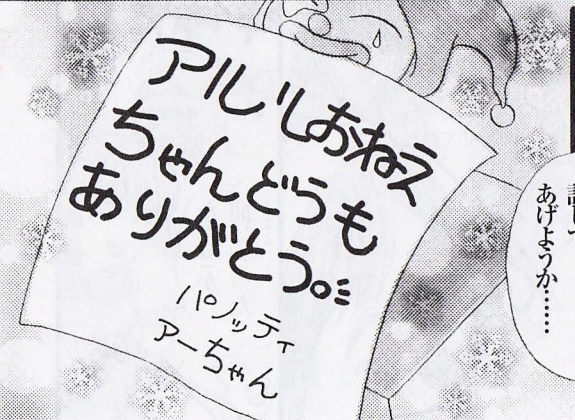 アルルおねえ
ちゃんどうも
ありがとう。
パノッティ
アーちゃん
あげようか……